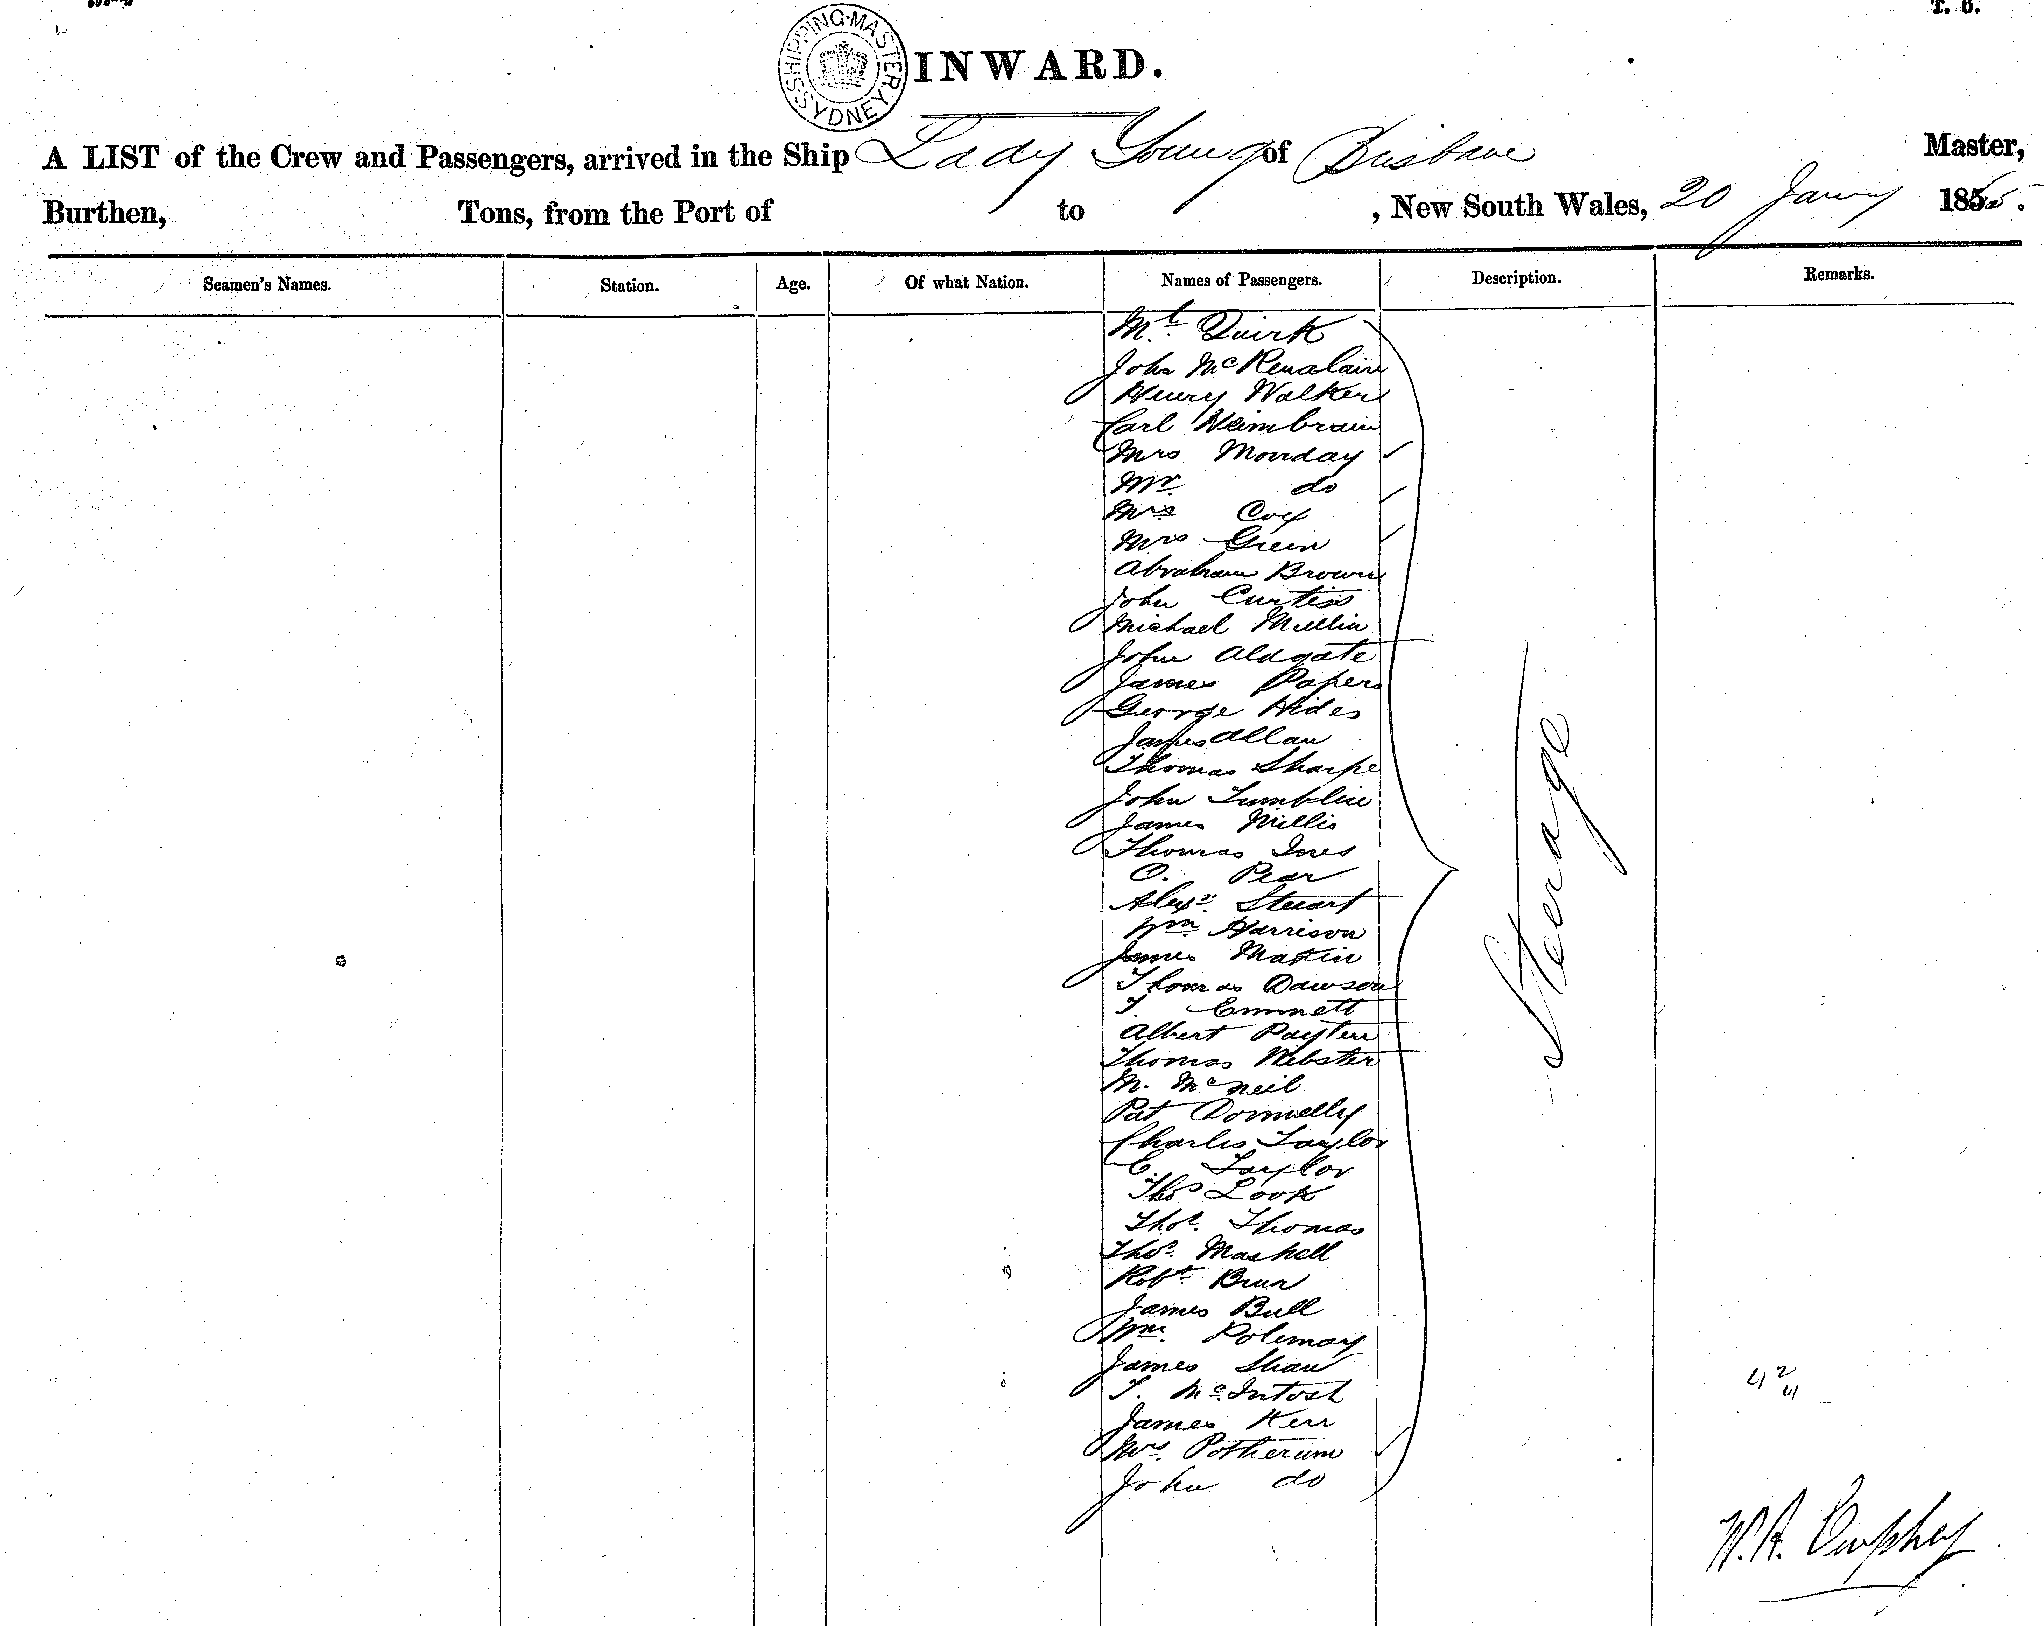 T. 6.
SHIPPING MASTER SYDNEY
INWARD.
A LIST of the Crew and Passengers, arrived in the Ship Lady Young of Brisbane Master,
Burthen, Tons, from the Port of to , New South Wales, 20 Jany 1865.
Seamen's Names. Station. Age. Of what Nation. Names of Passengers. Description. Remarks.
Quirk
John
Henry Walker
Carl
Mrs Monday
Mr do
Mrs Cox
Mrs Green
Abraham Brown
John Curtiss
Michael Mullin
John Aldgate
James
George Hides
James Allan
Thomas Sharpe
John Tumblin
James Millis
Thomas Ines
O. Pear
Alexr. Stuart
Wm Harrison
James Makin
Thomas Dawson
T. Emmett
Albert Payten
Thomas Webster
M. McNeil
Pat Donnelly
Charles Taylor
C. Taylor
Thos Look
Thos. Thomas
Thos. Maskell
Robt.
James Bull
Wm.
James Shaw
T. McIntosh
James Kerr
Mrs. Potherum
John do
Steerage
42